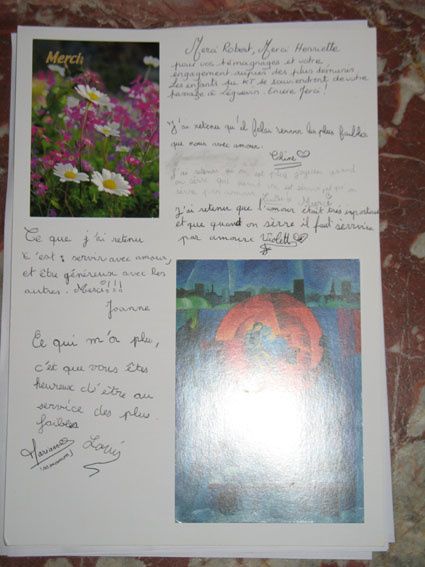 Merci
Merci Robert, Merci Henriette
pour vos témoignages et votre
engagement auprès des plus démunis
Les enfants du KT se souviendront de votre
passage à Léguevin. Encore Merci!
J'ai retenu qu'il falai servir les plus faibles
que nous avec amour.
Céline
J'ai retenu qu'on est plus
on sère
Merci
J'ai retenu que l'amour était très important
et que quand on sèrre il faut serrvire
par amoure Violette
Ce que j'ai retenu
c'est: servir avec amour,
et être généreux avec les
autres. Merci!!!
Joanne
Ce qui m'a plu,
c'est que vous êtes
heureux d'être au
service des plus
faibles
Marianne
(maman)
Louis